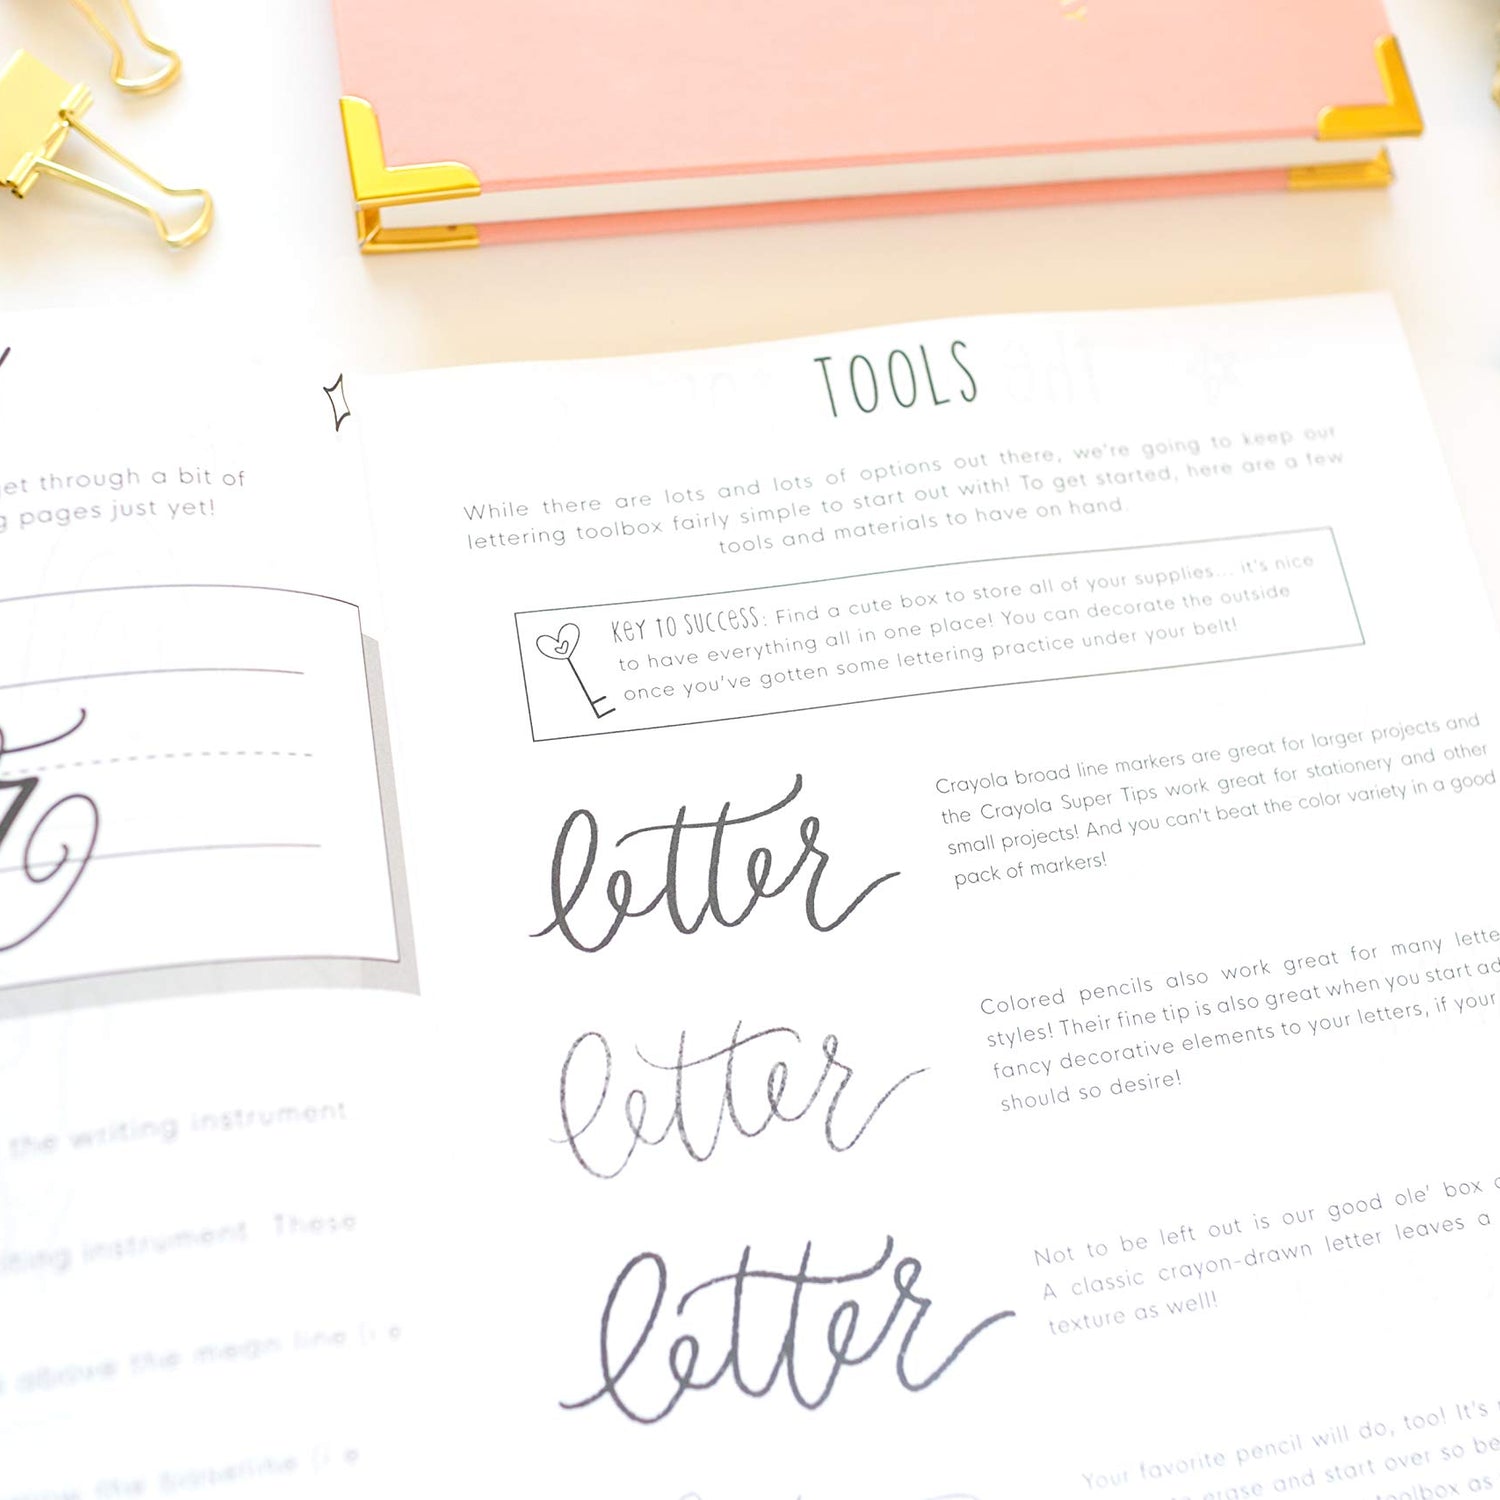 get through a bit of
pages just yet!
the writing instrument
instrument. These
above the mean line
the baseline
TOOLS
While there are lots and lots of options out there, we're going to keep our
lettering toolbox fairly simple to start out with! To get started, here are a few
tools and materials to have on hand.
KEY TO SUCCESS: Find a cute box to store all of your supplies... it's nice
to have everything all in one place! You can decorate the outside
once you've gotten some lettering practice under your belt!
letter
Crayola broad line markers are great for larger projects and
the Crayola Super Tips work great for stationery and other
small projects! And you can't beat the color variety in a good
pack of markers!
letter
Colored pencils also work great for many
styles! Their fine tip is also great when you start
fancy decorative elements to your letters, if your
should so desire!
letter
Not to be left out is our good ole' box
A classic crayon-drawn letter leaves a
texture as well!
Your favorite pencil will do, too! It's
erase and start over so
toolbox as